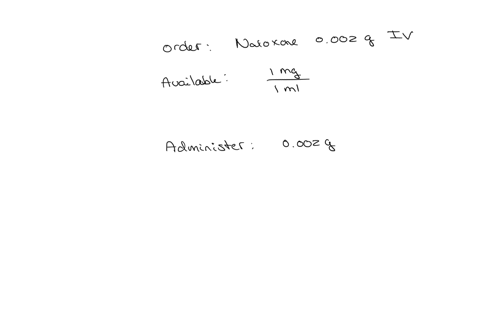 order: Naloxone 0.002 g IV
Available: 1 mg
1 ml
Administer: 0.002 g